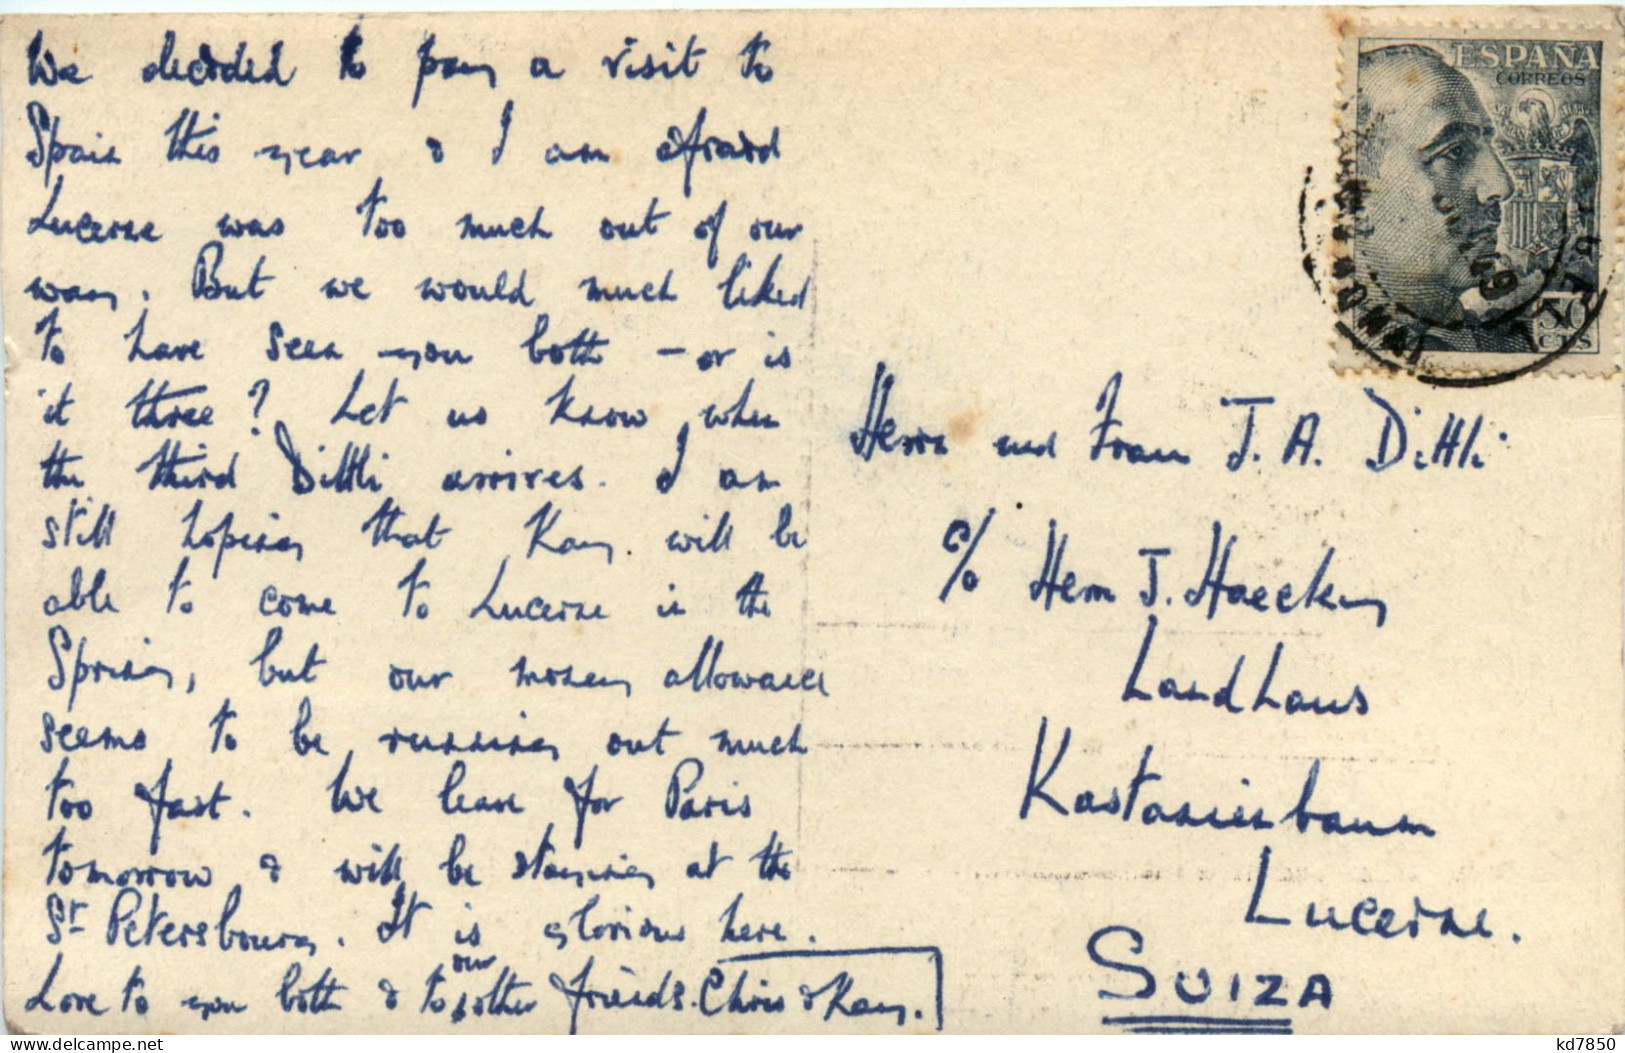 We decided to pay a visit to
Spain this year & I am afraid
Lucerne was too much out of our
way. But we would much liked
to have seen you both - or is
it three? Let us know when
the third Dittli arrives. I am
still hoping that Kay will be
able to come to Lucerne in the
Spring, but our money allowance
seems to be running out much
too fast. We leave for Paris
tomorrow & will be staying at the
St Petersbourg. It is glorious here.
Love to you both & to our other friends. Chris & Kay.
ESPAÑA
CORREOS
50
CTS
49
Herrn und Frau J. A. Dittli
c/o Herrn J. Haecky
Landhaus
Kastanienbaum
Lucerne.
SUIZA
kd7850